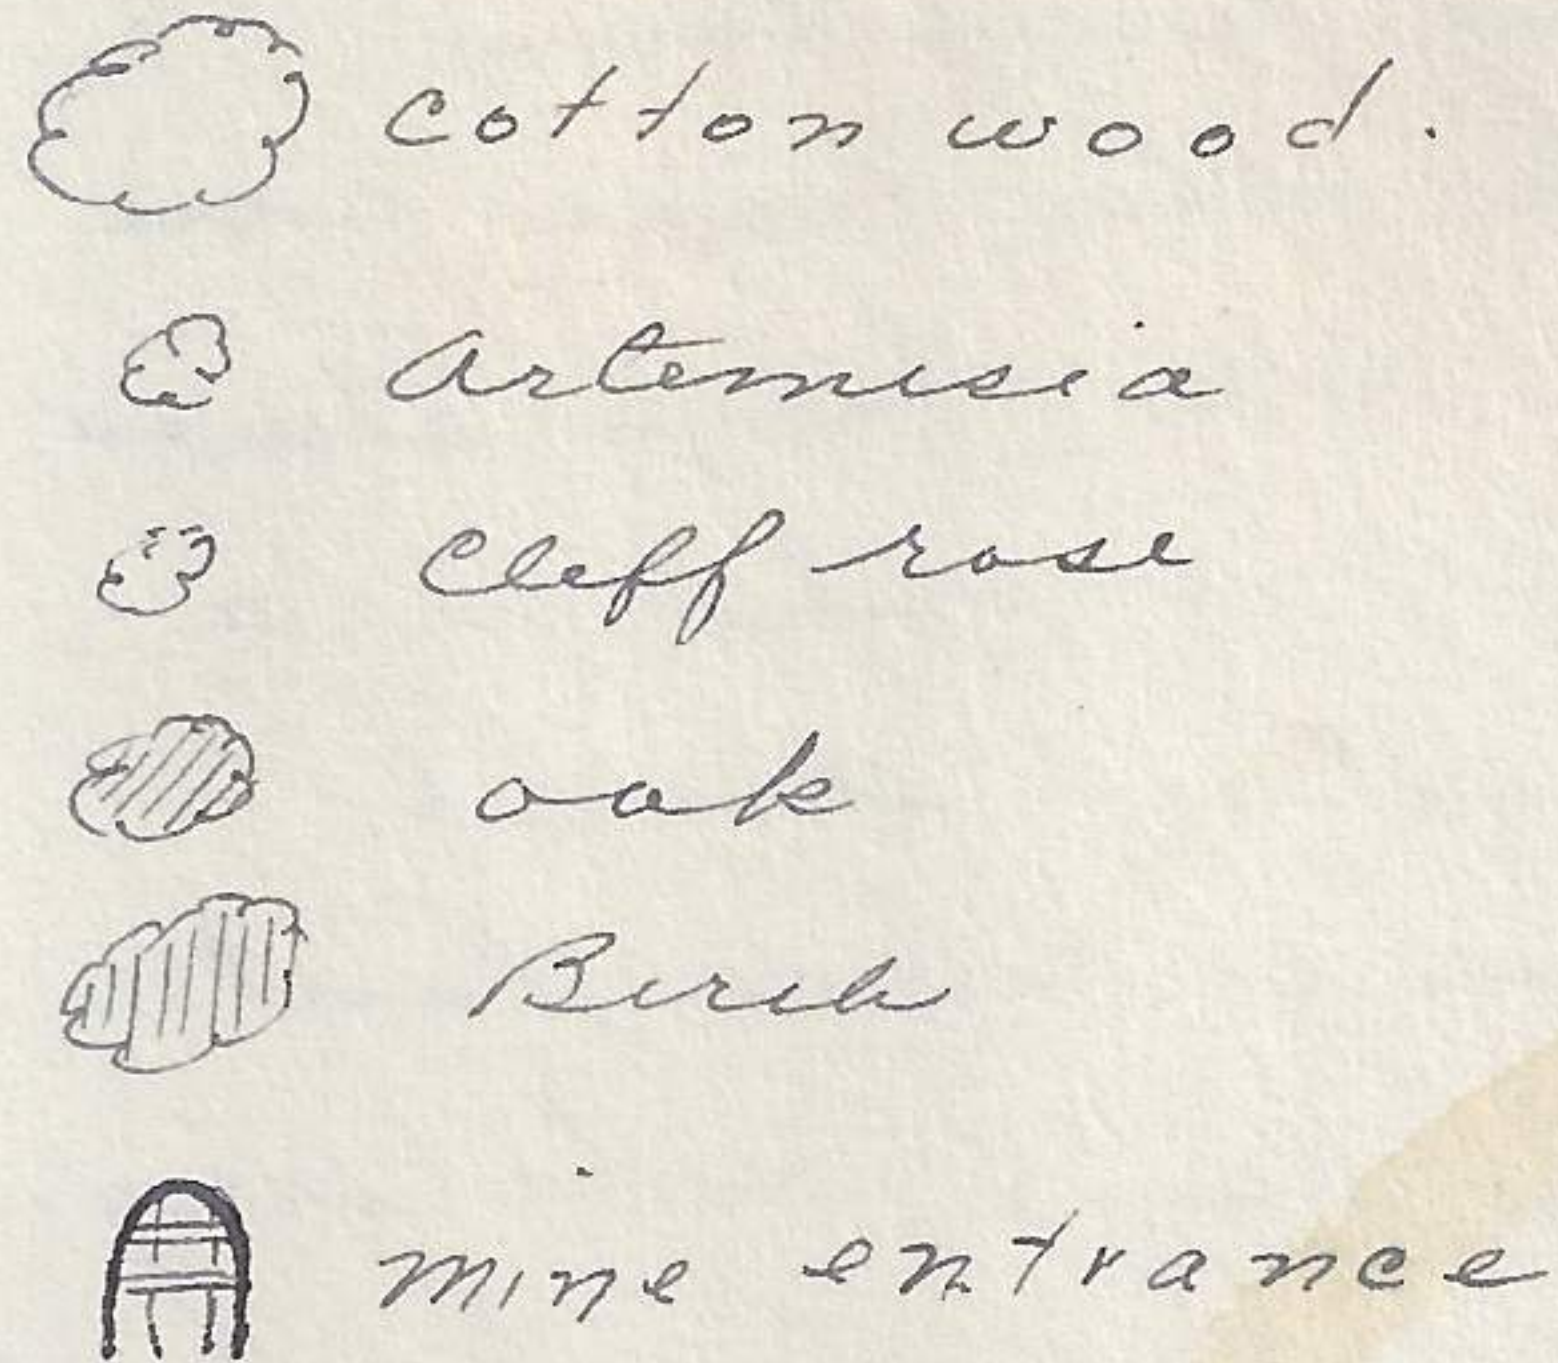 cotton wood.
Artemisia
Cliff rose
oak
Birch
mine entrance